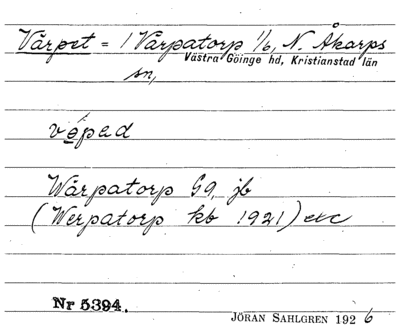 Vårpet = 1 Varpatorp 1/6, N. Åkarps
Västra Göinge hd, Kristianstad län
sn,
Wårpatorp G9, jb
(Werpatorp kb 1921) etc
Nr 5394.
JÖRAN SAHLGREN 1926